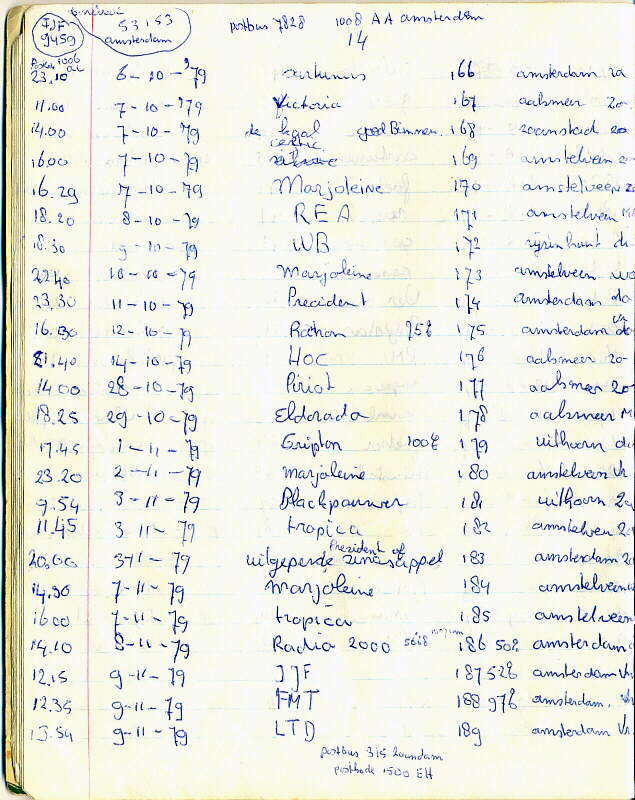 FJF 9459
53153 amsterdam
postbus 7828 1008 AA amsterdam
14
23.10 6-10-79 166 amsterdam za
11.00 7-10-79 Victoria 167 aalsmeer zo
14.00 7-10-79 de legal 168 zaanstad zo
centric
16.00 7-10-79 169 amstelveen
16.29 7-10-79 Marjoleine 170 amstelveen zo
18.20 8-10-79 REA 171 amstelveen
18.30 9-10-79 WB 172
22.40 10-10-79 Marjoleine 173 amstelveen wo
23.30 11-10-79 Precident 174 amsterdam do
16.30 12-10-79 175 amsterdam
21.40 14-10-79 HOC 176 aalsmeer zo
14.00 28-10-79 Piriot 177 aalsmeer zo
18.25 29-10-79 Eldorada 178 aalsmeer
17.45 1-11-79 Gripton 179 uithoorn do
23.20 2-11-79 Marjoleine 180 amstelveen Vr
9.54 3-11-79 Blackpanwer 181 uithoorn za
11.45 3 11-79 tropica 182 amstelveen za
President of
20.00 3-11-79 uitgeperde sinasappel 183 amsterdam za
14.30 7-11-79 Marjoleine 184 amstelveen
16.00 7-11-79 tropica 185 amstelveen
14.10 8-11-79 Radio 2000 186 502 amsterdam
12.15 9-11-79 JJF 187 528 amsterdam Vr
12.35 9-11-79 FMT 188 976 amsterdam. Vr
13.54 9-11-79 LTD 189 amsterdam Vr
postbus 315 Zaandam
postkode 1500 EH